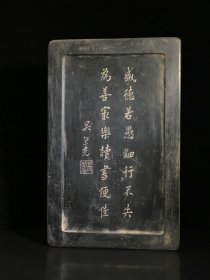 盛德若愚細行不失
為善最樂讀書便佳
吳